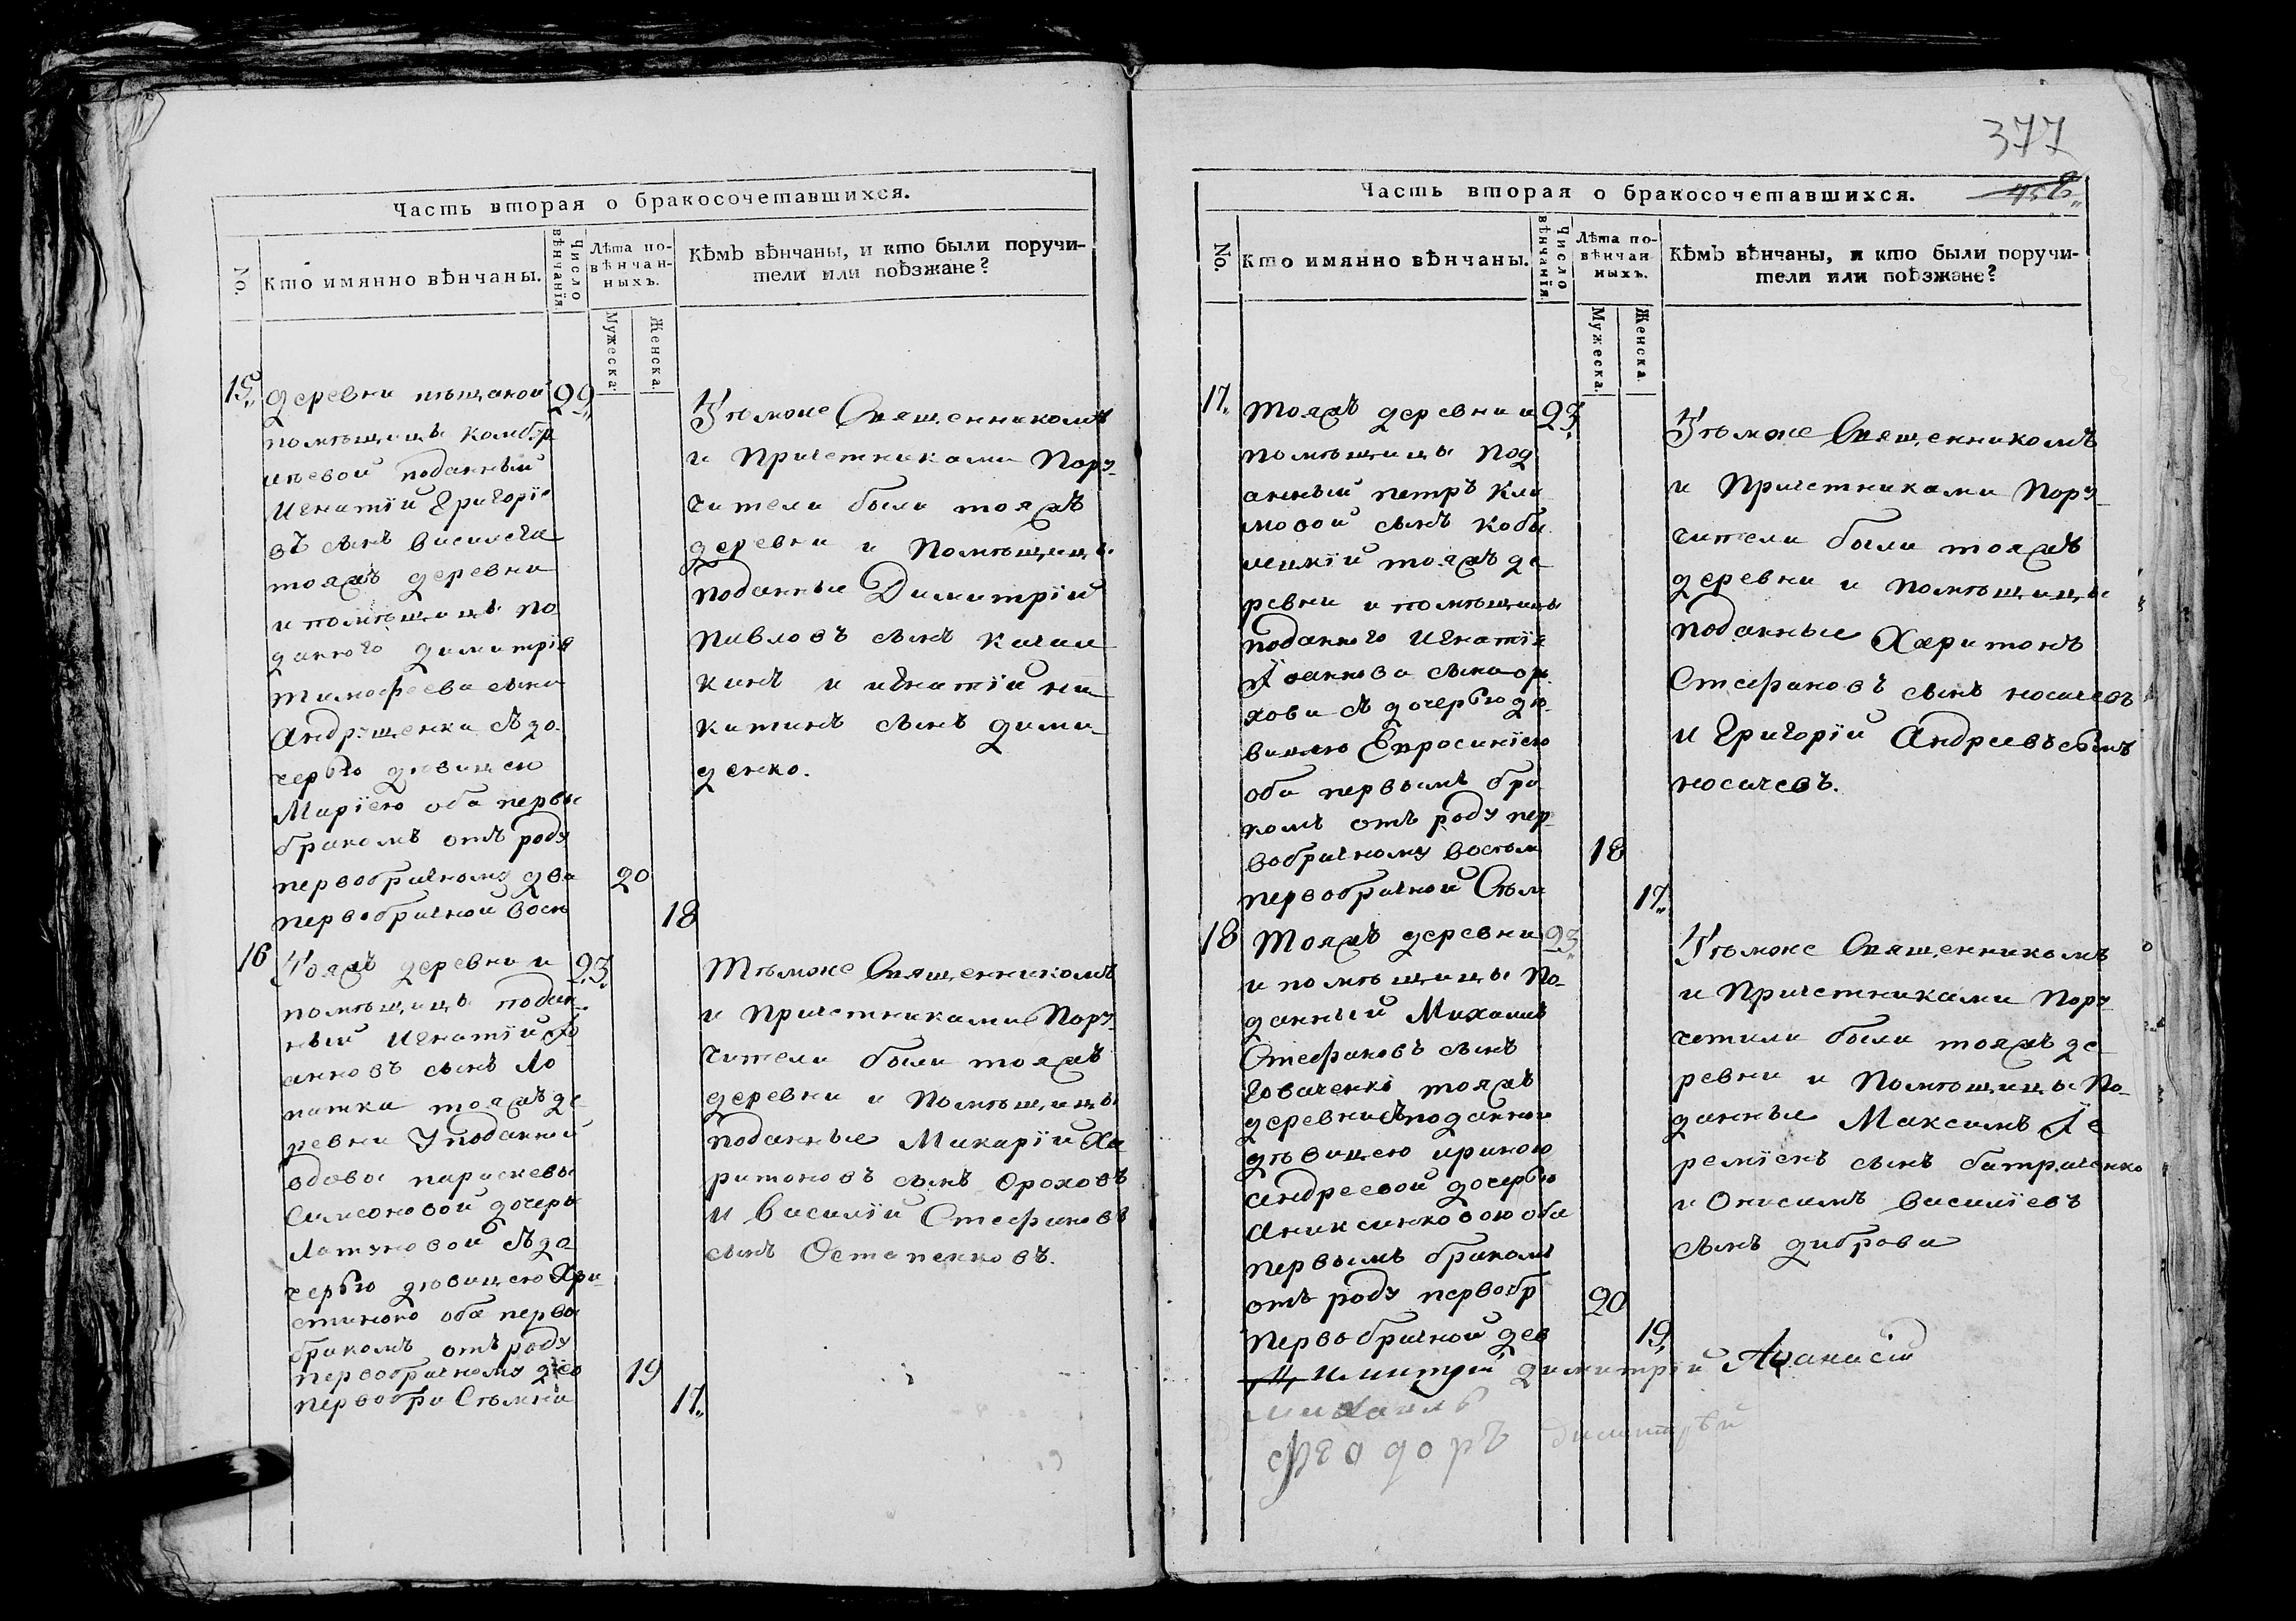 Часть вторая о бракосочетавшихся.
No.
Кто имянно вѣнчаны.
Число вѣнчанїя
Лѣта по-
вѣнчан-
ныхъ.
Мужеска.
Женска.
Кѣмъ вѣнчаны, и кто были поручи-
тели или поѣзжане?
15. деревни 22
помѣщицы
поданный
Игнатїй Григорїе
въ сынъ
тояжъ деревни
и помѣщицы по
даного димитрїя
тимофеева сына
Андрущенка съ до
черью девицею
Марїею оба первы
бракомъ отъ роду
первобрачному два 20
первобрачной восм 18
Тѣмже Священникомъ
и Причетниками Пору-
чители были тояжъ
деревни и Помѣщицы
поданные Димитрїй
Павловъ сынъ
кинъ и игнатїй ни
китинъ сынъ дими
денко.
16 Тояжъ деревни и 23
помѣщицы подан
ный Игнатїй Їо
анновъ сынъ Ло
патка тояжъ де
ревни у поданной
вдовы параскевы
Симеоновой дочеры
съ до
черью девицею Хри-
стиною оба первы
бракомъ отъ роду
первобрачному дев 19
первобра Сѣмна 17
Тѣмже Священникомъ
и Причетниками Пору-
чители были тояжъ
деревни и Помѣщицы
поданные Макарїй Ха
ритоновъ сынъ Ороховъ
и Василїй Стефановъ
сынъ Остапенковъ.
377
Часть вторая о бракосочетавшихся.
No.
Кто имянно вѣнчаны.
Число вѣнчанїя
Лѣта по-
вѣнчан-
ныхъ.
Мужеска.
Женска.
Кѣмъ вѣнчаны, и кто были поручи-
тели или поѣзжане?
17. Тояжъ деревни и 23
помѣщицы под
анный петръ Кли
мовой сынъ Кобы
лецкїй тояжъ де
ревни и помѣщицы
поданого Игнатїя
Їоаннова сына ор
хова съ дочерью де
вицею Евросинїею
оба первымъ бра
комъ отъ роду пер
вобрачному восѣм 18
первобрачной Сѣм 17.
Тѣмже Священникомъ
и Причетниками Пору
чители были тояжъ
деревни и помѣщицы
поданные Харитонъ
Стефановъ сынъ носачевъ
и Григорїй Андреевъ сынъ
носачевъ.
18 Тояжъ деревни 23
и помѣщицы По-
данный Михаилъ
Стефановъ сынъ
тояжъ
деревни съ поданною
дѣвицею ириною
андреевой дочерью
оба
первымъ бракомъ
отъ роду первобр 20
первобрачной дев 19
Тѣмже Священникомъ
и Причетниками Пору
чители были тояжъ де
ревни и Помѣщицы По-
данные Максимъ Їе
ремїенъ сынъ батраченко
и Онисимъ Василїевъ
сынъ диброва
димитрїй Афанасїй
михаилъ
феодоръ димитрѣй